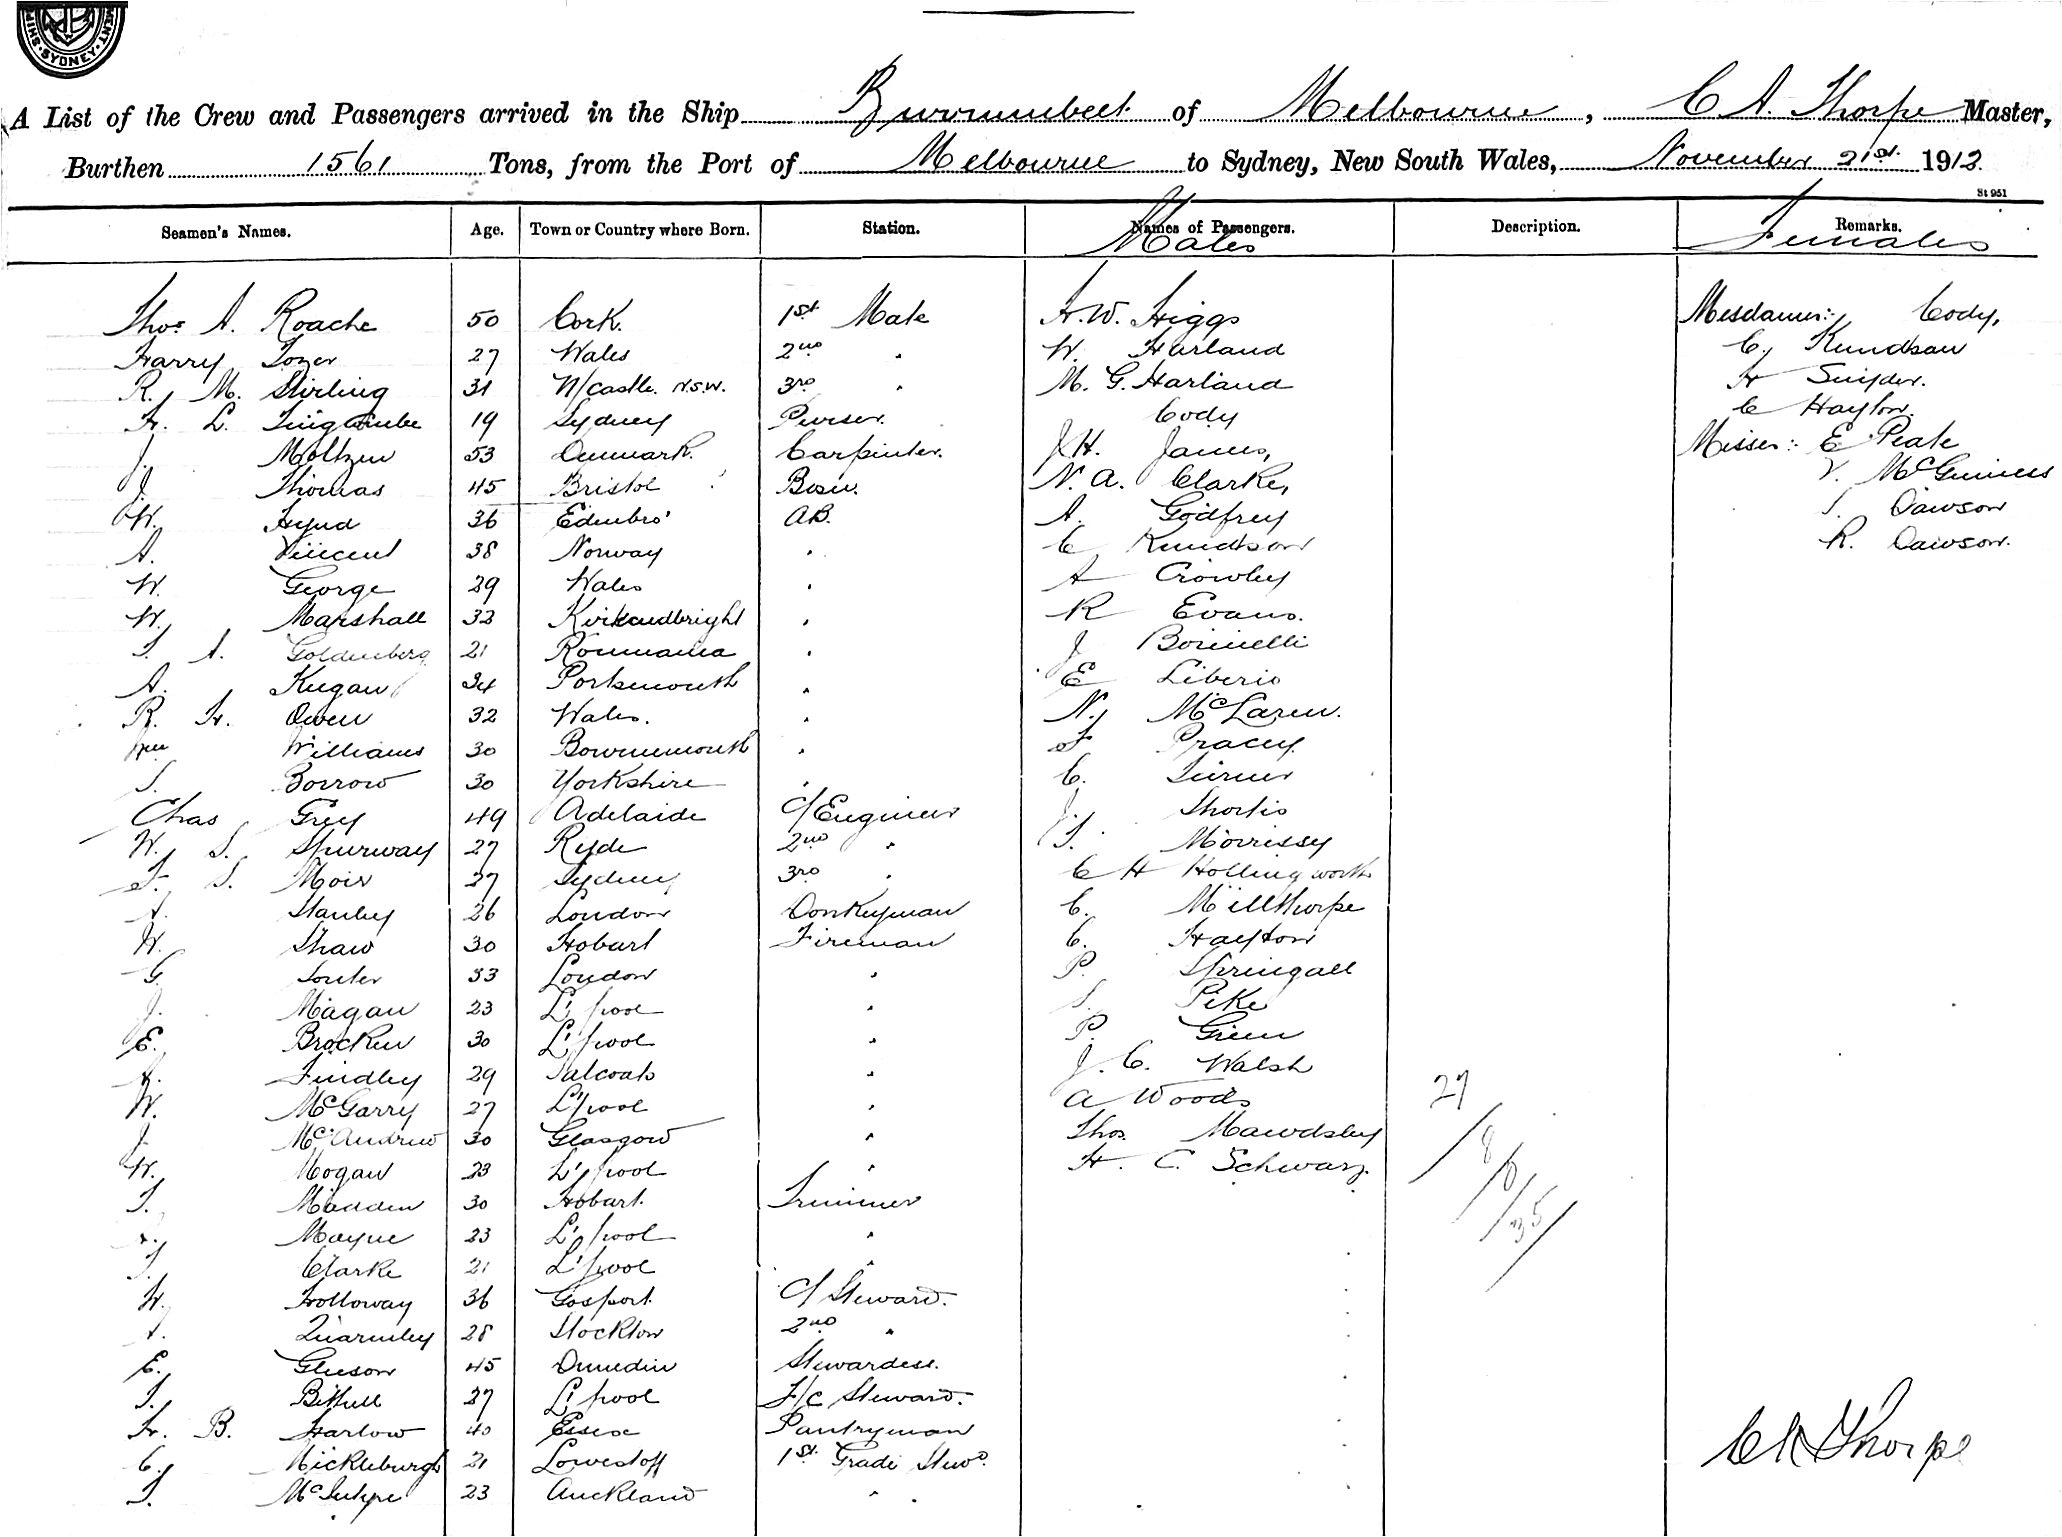 SYDNEY
A List of the Crew and Passengers arrived in the Ship Burrumbeet of Melbourne, C A. Thorpe Master,
Burthen 1561 Tons, from the Port of Melbourne to Sydney, New South Wales, November 21st 1912
St 951
Seamen's Names. Age. Town or Country where Born. Station. Names of Passengers. Males Description. Remarks. Females
Thos A. Roache 50 Cork. 1st Mate H. W. Higgs Mesdames: Cody,
Harry Tozer 27 Wales 2nd " W. Harland C. Knudson
R. M. Stirling 31 N/castle. N.S.W. 3rd " M. G. Harland H Snyder.
H. L. 19 Sydney Purser. Cody C Hayton.
J. Moltzen 53 Denmark. Carpenter. J H. James, Misses: E Peate
J. Thomas 45 Bristol Bosn. N. A. Clarke, V. McGuiness
W. Hynd 36 Edinbro' AB. A. Godfrey Dawson
A. Vincent 38 Norway " C Knudson R. Dawson.
W. George 29 Wales " A Crowley
W. Marshall 32 Kirkcudbright " R Evans.
S. A. Goldenberg 21 Roumania " J Boninelli
A. Keegan 34 Portsmouth " E Liberio
R. H. Owen 32 Wales. " N. McLaren.
Wm Williams 30 Bournemouth " F Pracey
S. Borrow 30 Yorkshire " C. Turner
Chas Grey 49 Adelaide C/Engineer J. Shortis
W. S. Spurway 27 Ryde 2nd " T. Morrissy
F. S. Moir 27 Sydney 3rd " C H Hollingworth
A. Stanley 26 London Donkeyman C. Millthorpe
W. Shaw 30 Hobart Fireman C. Hayton
G. Souter 33 London " P. Springall
J. Magan 23 L'pool " S. Pike
E. Brocken 30 L'pool " P. Green
Findley 29 Salcoats " J. C. Walsh
W. McGarry 27 L'pool " A Woods 27
J. McAndrew 30 Glasgow " Thos. Mawdsley / 8
W. Hogan 23 L'pool " H. C. Schwarz. / 0
T. Madden 30 Hobart. Trimmer / 35 /
Mayne 23 L'pool "
T. Clarke 21 L'pool "
H. Holloway 36 Gosport. C/Steward.
A. Quarmley 28 Stockton 2nd "
E. Gleeson 45 Dunedin Stewardess.
T. Bithell 27 L'pool F/C Steward.
H. B. Harlow 40 Essex Pantryman CA Thorpe
C. Mickleburgh 21 Lowestoff 1st Grade Stewd.
T. McIntyre 23 Auckland "